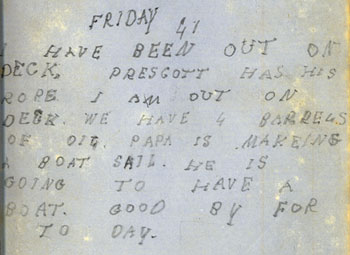 FRIDAY 41
I HAVE BEEN OUT ON
DECK, PRESCOTT HAS HIS
ROPE I AM OUT ON
DECK. WE HAVE 4 BARRELS
OF OIL. PAPA IS MAKEING
A BOAT SAIL. HE IS
GOING TO HAVE A
BOAT. GOOD BY FOR
TO DAY.